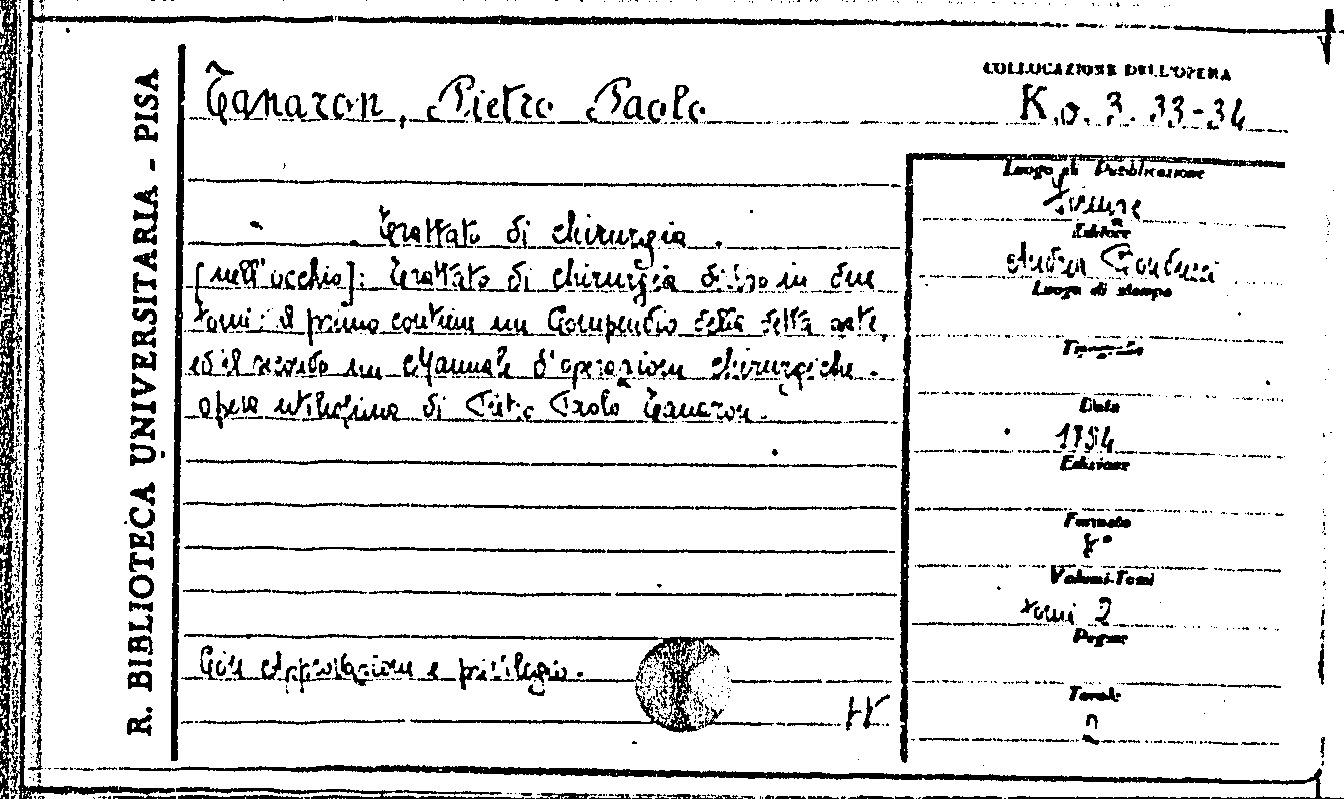 R. BIBLIOTECA UNIVERSITARIA - PISA
Tanaron, Pietro Paolo
COLLOCAZIONE DELL'OPERA
K.o. 3. 33-34
Trattato di chirurgia.
[nell'occhio]: Trattato di chirurgia diviso in due
tomi: il primo contiene un Compendio della detta arte,
ed il secondo un Manuale d'operazioni chirurgiche.
opera utilissima di Pietro Paolo Tanaron.
Con Approvazione e privilegio.
Luogo di Pubblicazione
Firenze
Editore
Andrea
Luogo di stampa
Data
1754
Edizione
Formato
8°
Volumi-Tomi
tomi 2
Pagine
Tavole
2